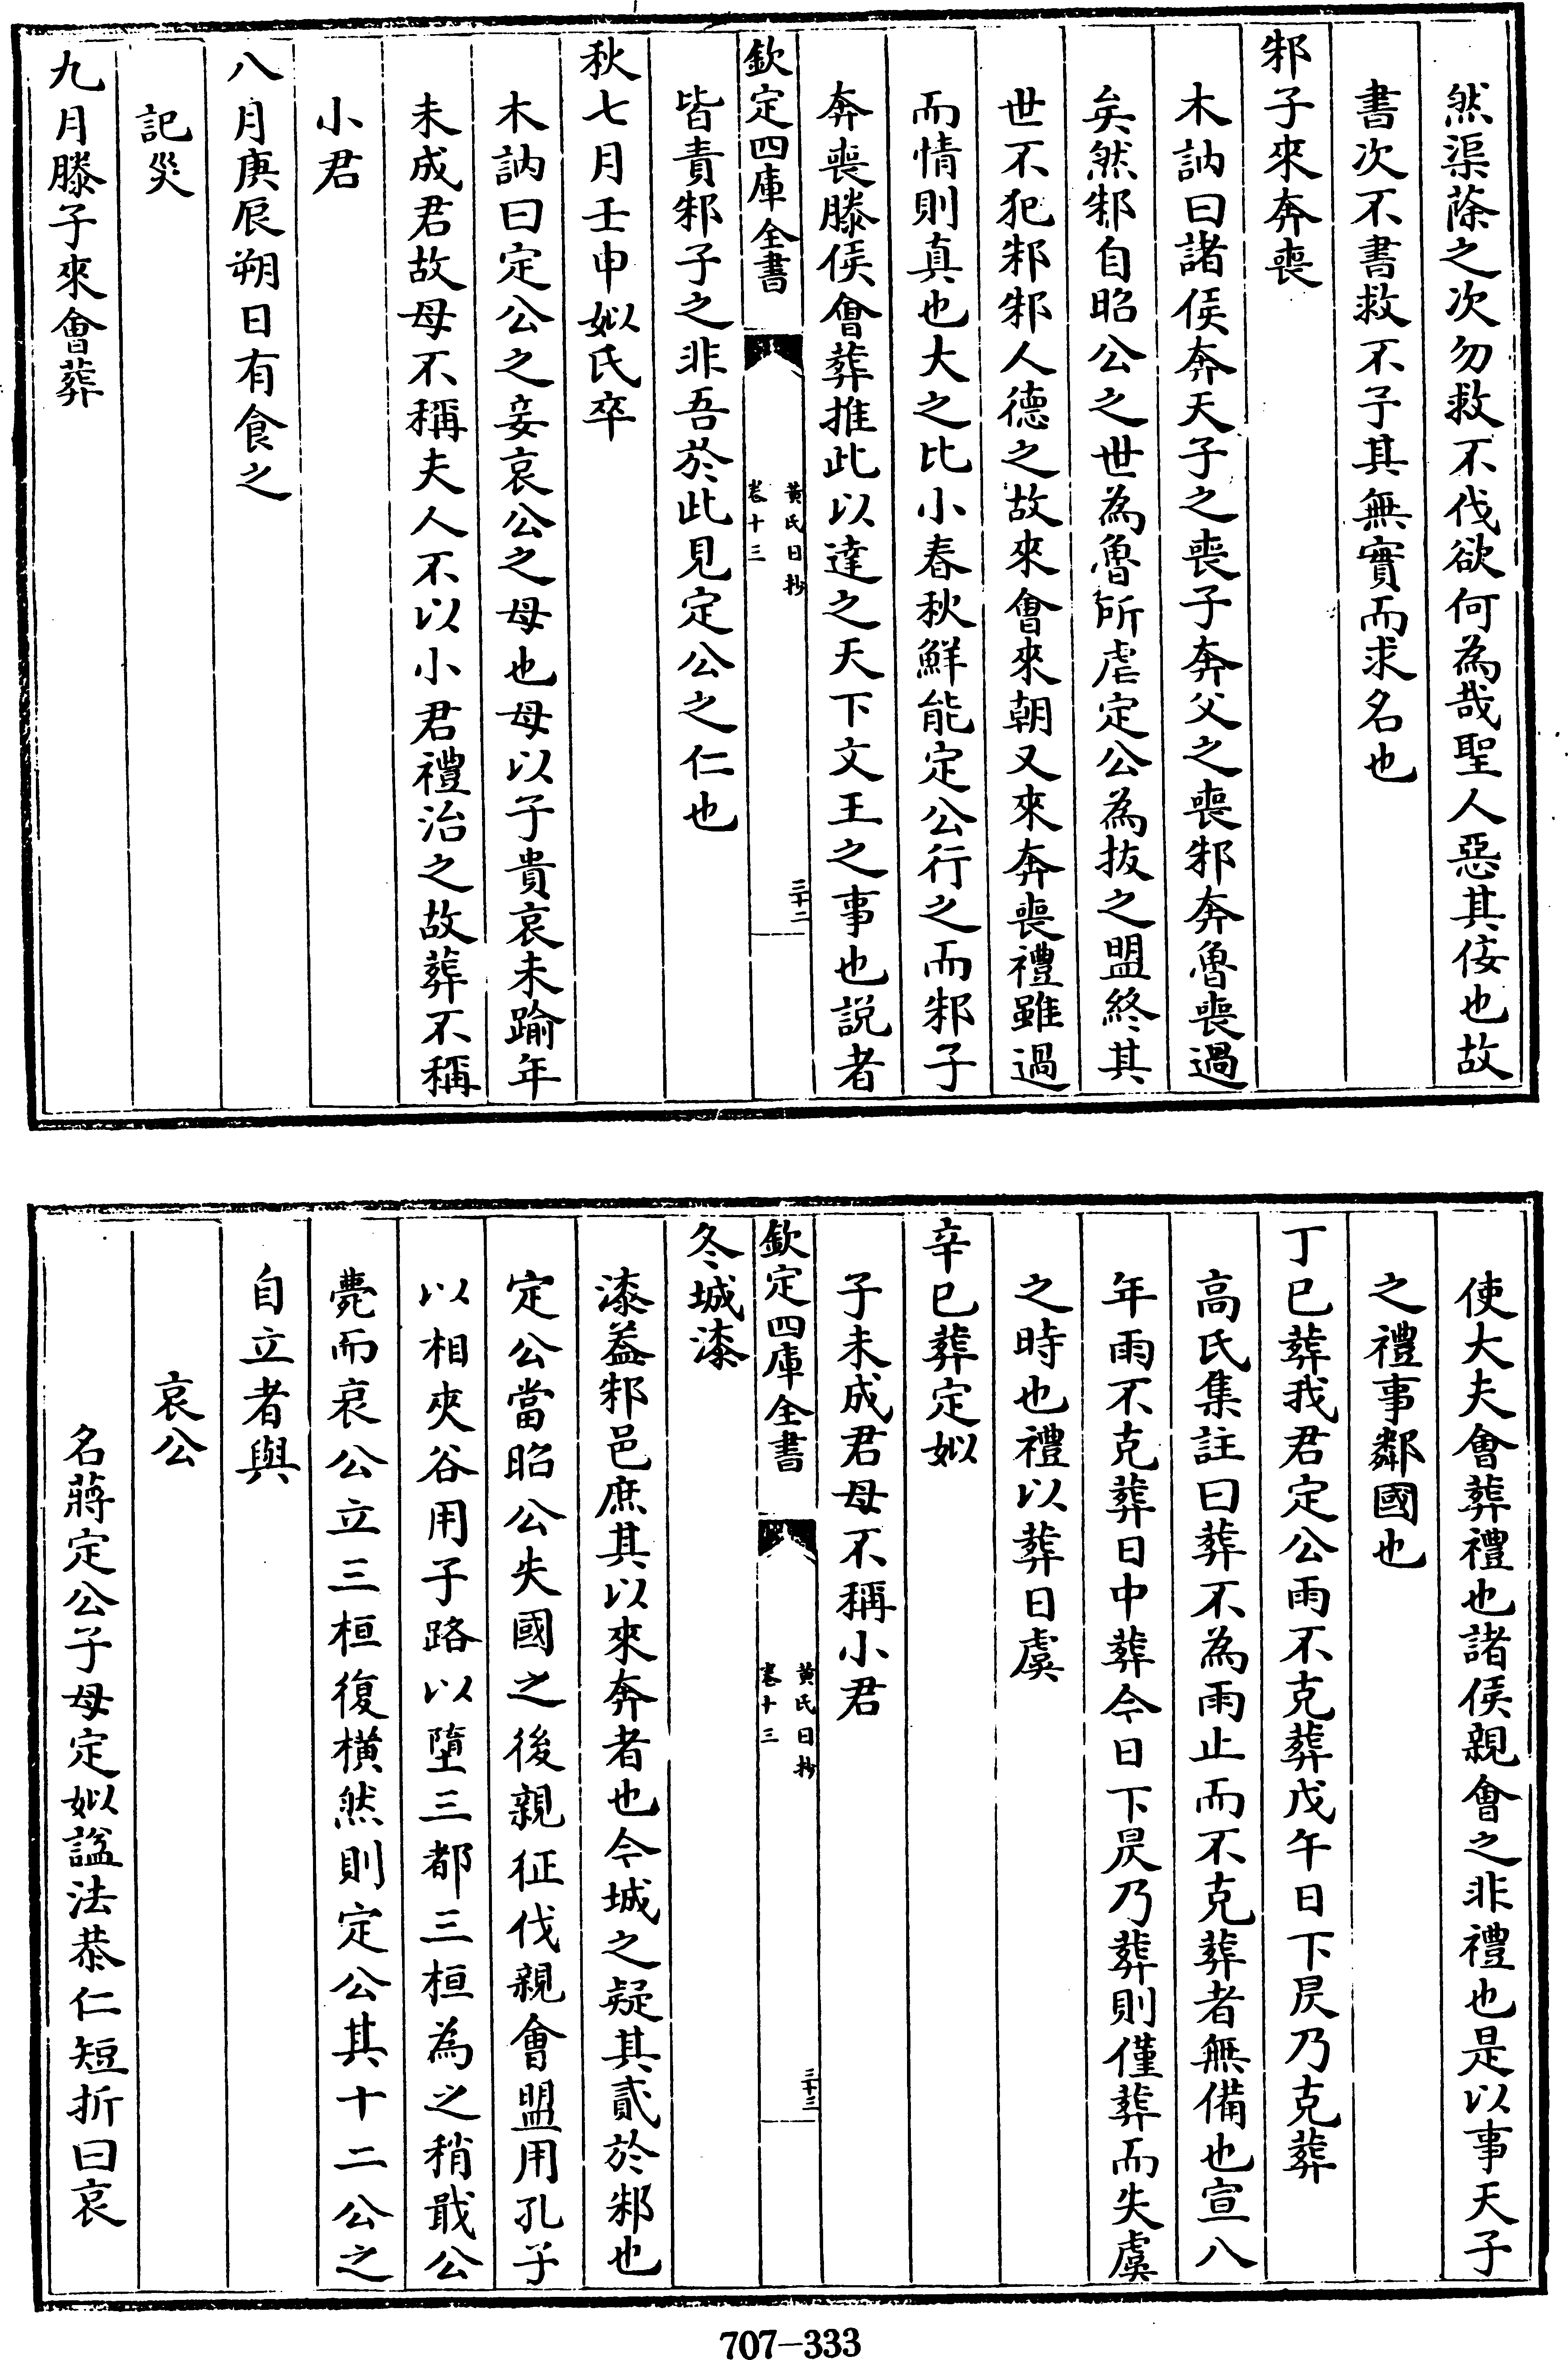 然渠蒢之次勿救不伐欲何為哉聖人惡其佞也故
書次不書救不予其無實而求名也
邾子來奔喪
木訥曰諸侯奔天子之喪子奔父之喪邾奔魯喪過
矣然邾自昭公之世為魯所虐定公為拔之盟終其
世不犯邾邾人德之故來會來朝又來奔喪禮雖過
而情則真也大之比小春秋鮮能定公行之而邾子
奔喪滕侯會葬推此以達之天下文王之事也説者
欽定四庫全書
黃氏日抄
卷十三
三十二
皆責邾子之非吾於此見定公之仁也
秋七月壬申姒氏卒
木訥曰定公之妾哀公之母也母以子貴哀未踰年
未成君故母不稱夫人不以小君禮治之故葬不稱
小君
八月庚辰朔日有食之
記災
九月滕子來會葬
使大夫會葬禮也諸侯親會之非禮也是以事天子
之禮事鄰國也
丁巳葬我君定公雨不克葬戊午日下昃乃克葬
高氏集註曰葬不為雨止而不克葬者無備也宣八
年雨不克葬日中葬今日下昃乃葬則僅葬而失虞
之時也禮以葬日虞
辛巳葬定姒
子未成君母不稱小君
欽定四庫全書
黃氏日抄
卷十三
三十三
冬城漆
漆葢邾邑庶其以來奔者也今城之疑其貳於邾也
定公當昭公失國之後親征伐親會盟用孔子
以相夾谷用子路以墮三都三桓為之稍戢公
薨而哀公立三桓復橫然則定公其十二公之
自立者與
哀公
名蔣定公子母定姒諡法恭仁短折曰哀
707-333